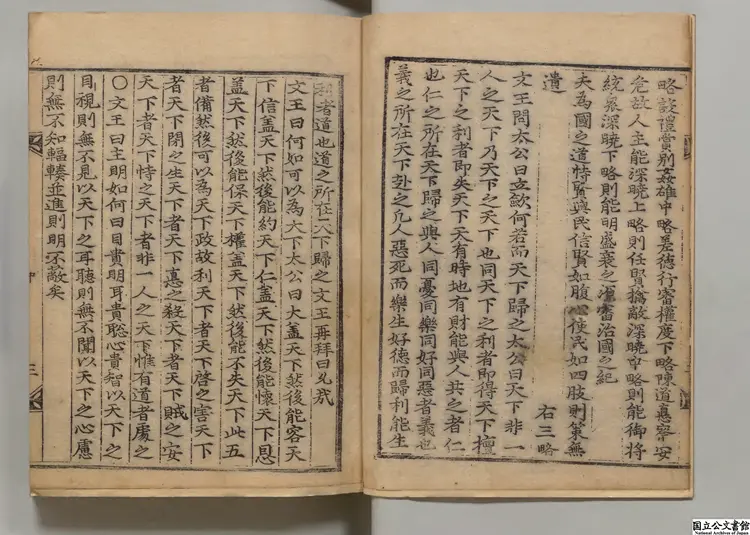 略設禮賞別姦雄中略差德行審權度下略陳道悳察安
危故人主能深曉上略則任賢擒敵深曉中略則能御將
統衆深曉下略則能明盛衰之源審治國之紀
夫為國之道恃賢與民信賢如腹心使民如四肢則策無
遺
右三略
文王問太公曰立歛何若而天下歸之太公曰天下非一
人之天下乃天下之天下也同天下之利者即得天下擅
天下之利者即失天下天有時地有財能與人共之者仁
也仁之所在天下歸之與人同憂同樂同好同惡者義也
義之所在天下赴之凡人惡死而樂生好德而歸利能生
利者道也道之所在天下歸之文王再拜曰允哉
文王曰何如可以為天下太公曰大盖天下然後能容天
下信盖天下然後能約天下仁盖天下然後能懷天下恩
盖天下然後能保天下權盖天下然後能不失天下此五
者備然後可以為天下政故利天下者天下啓之害天下
者天下閉之生天下者天下悳之殺天下者天下賊之安
天下者天下恃之天下者非一人之天下惟有道者處之
〇文王曰主明如何曰目貴明耳貴聡心貴智以天下之
目視則無不見以天下之耳聽則無不聞以天下之心慮
則無不知輻輳並進則明不敵矣
中 三
国立公文書館
National Archives of Japan